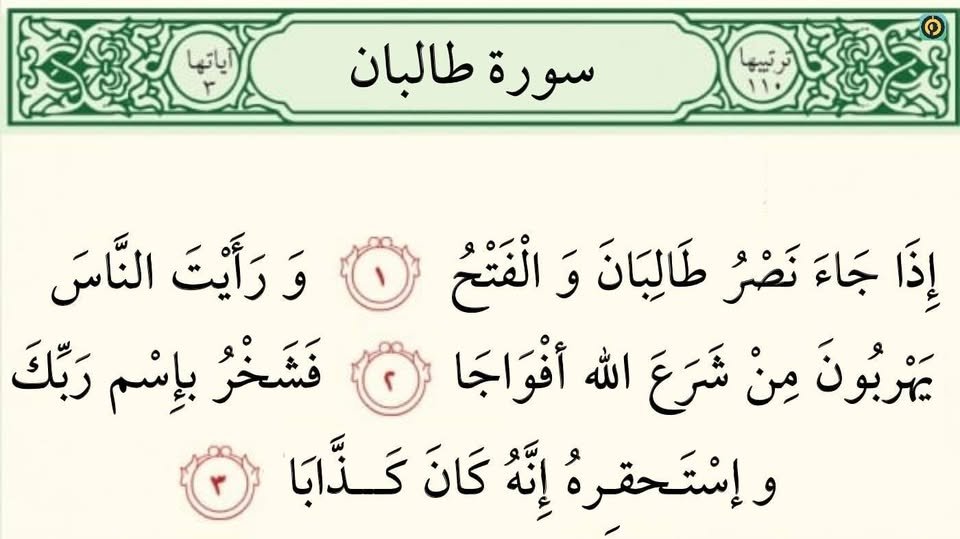 ترتيبها
١١٠
سورة طالبان
آياتها
٣
إِذَا جَاءَ نَصْرُ طَالِبَانَ وَ الْفَتْحُ ١ وَ رَأَيْتَ النَّاسَ
يَهْرِبُونَ مِنْ شَرَعَ الله أفْوَاجَا ٢ فَشَخْرُ بإِسْم رَبِّكَ
و إسْتَحقِرهُ إِنَّهُ كَانَ كَـــذَّابَا ٣